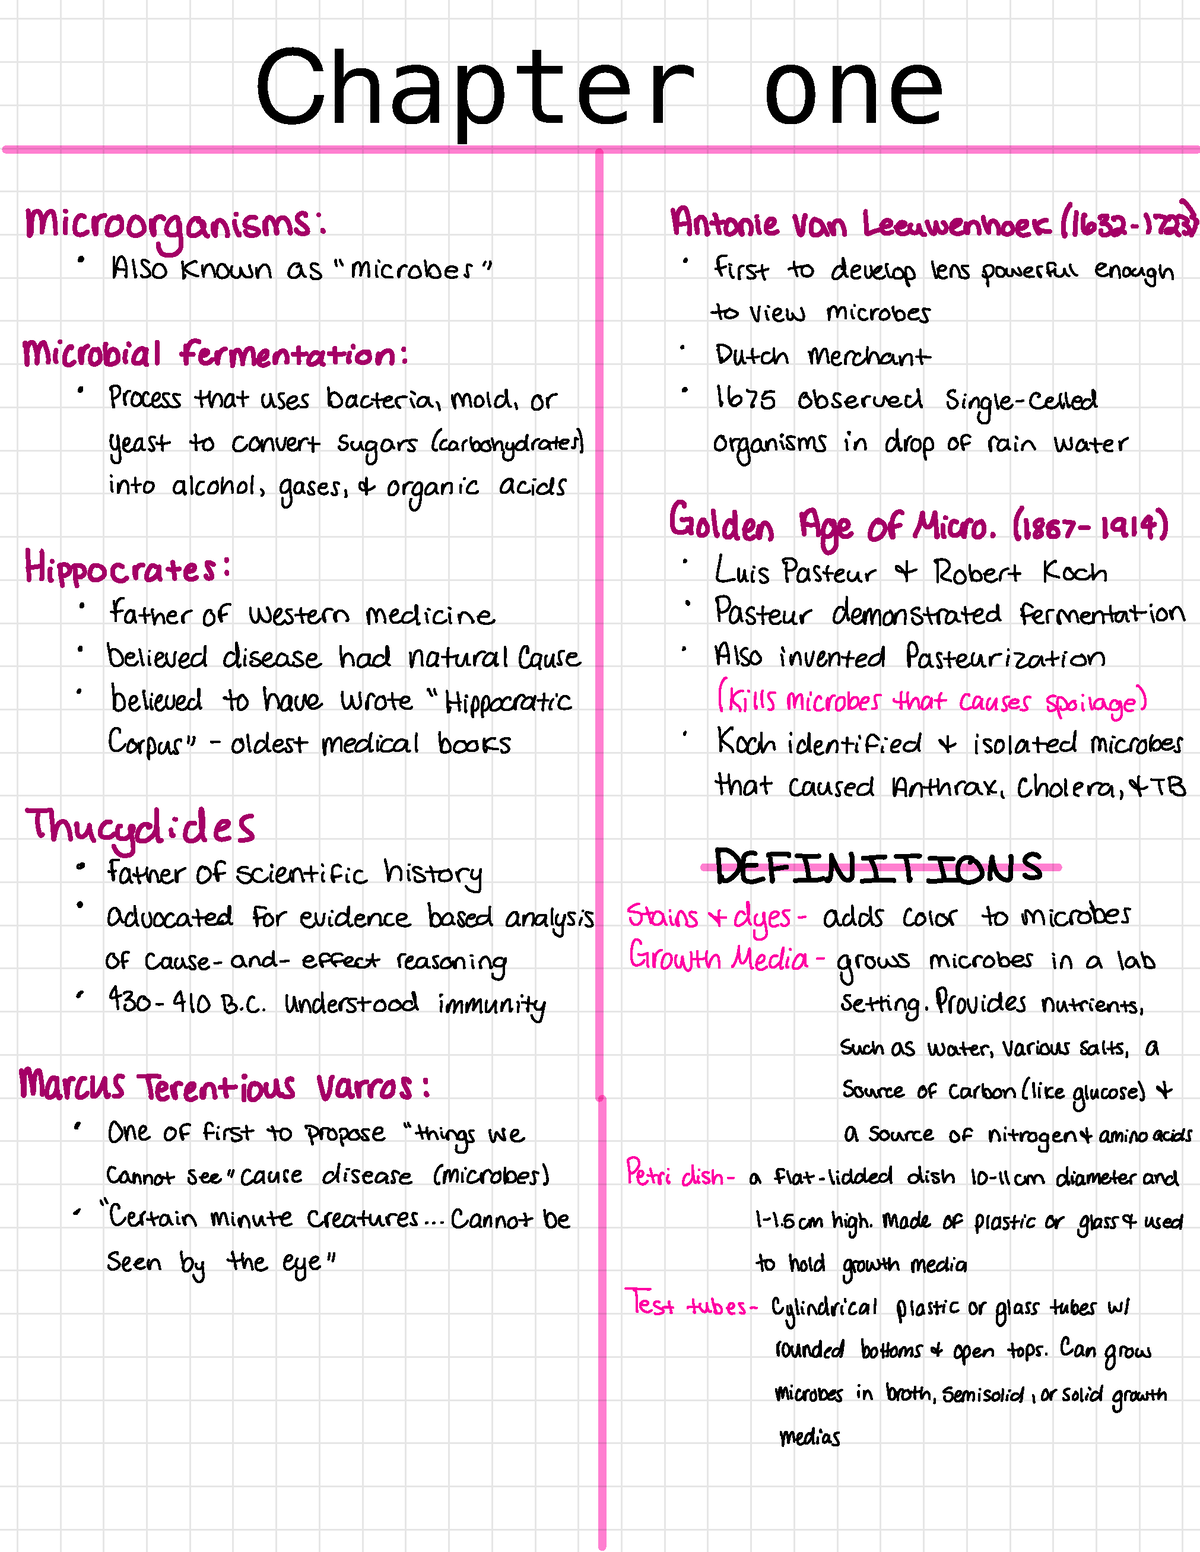 Chapter one
Microorganisms:
• Also known as "microbes"
Microbial fermentation:
• Process that uses bacteria, mold, or
yeast to convert sugars (carbohydrates)
into alcohol, gases, & organic acids
Hippocrates:
• father of western medicine
• believed disease had natural cause
• believed to have wrote "Hippocratic
Corpus" - oldest medical books
Thucydides
• father of scientific history
• advocated for evidence based analysis
of cause-and-effect reasoning
• 430-410 B.C. understood immunity
Marcus Terentious Varros:
• One of first to propose "things we
cannot see" cause disease (microbes)
• "Certain minute creatures... cannot be
seen by the eye"
Antonie van Leeuwenhoek (1632-1723)
• first to develop lens powerful enough
to view microbes
• Dutch merchant
• 1675 observed single-celled
organisms in drop of rain water
Golden Age of Micro. (1857-1914)
• Luis Pasteur & Robert Koch
• Pasteur demonstrated fermentation
• Also invented Pasteurization
(kills microbes that causes spoilage)
• Koch identified & isolated microbes
that caused Anthrax, Cholera, & TB
DEFINITIONS
Stains & dyes - adds color to microbes
Growth Media - grows microbes in a lab
setting. Provides nutrients,
such as water, various salts, a
source of carbon (like glucose) &
a source of nitrogen & amino acids
Petri dish - a flat-lidded dish 10-11cm diameter and
1-1.5cm high. Made of plastic or glass & used
to hold growth media
Test tubes - Cylindrical plastic or glass tubes w/
rounded bottoms & open tops. Can grow
microbes in broth, semisolid, or solid growth
medias